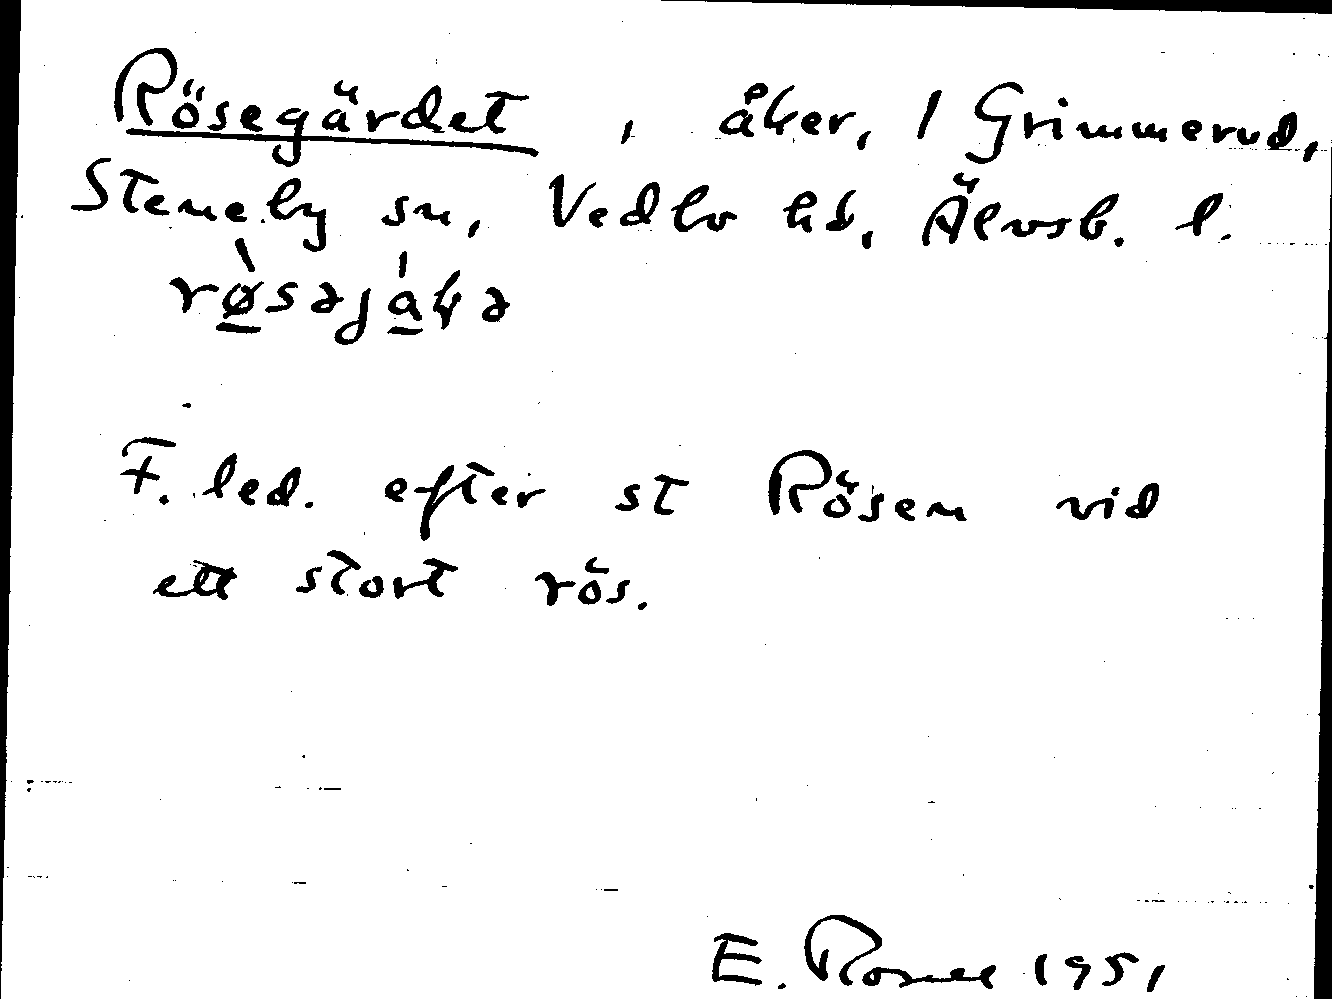 Rösegärdet, åker, 1 Grimmerud,
Steneby sn, Vedbo hd, Älvsb. l.
F. led. efter st Rösen vid
ett stort rös.
E. 1951